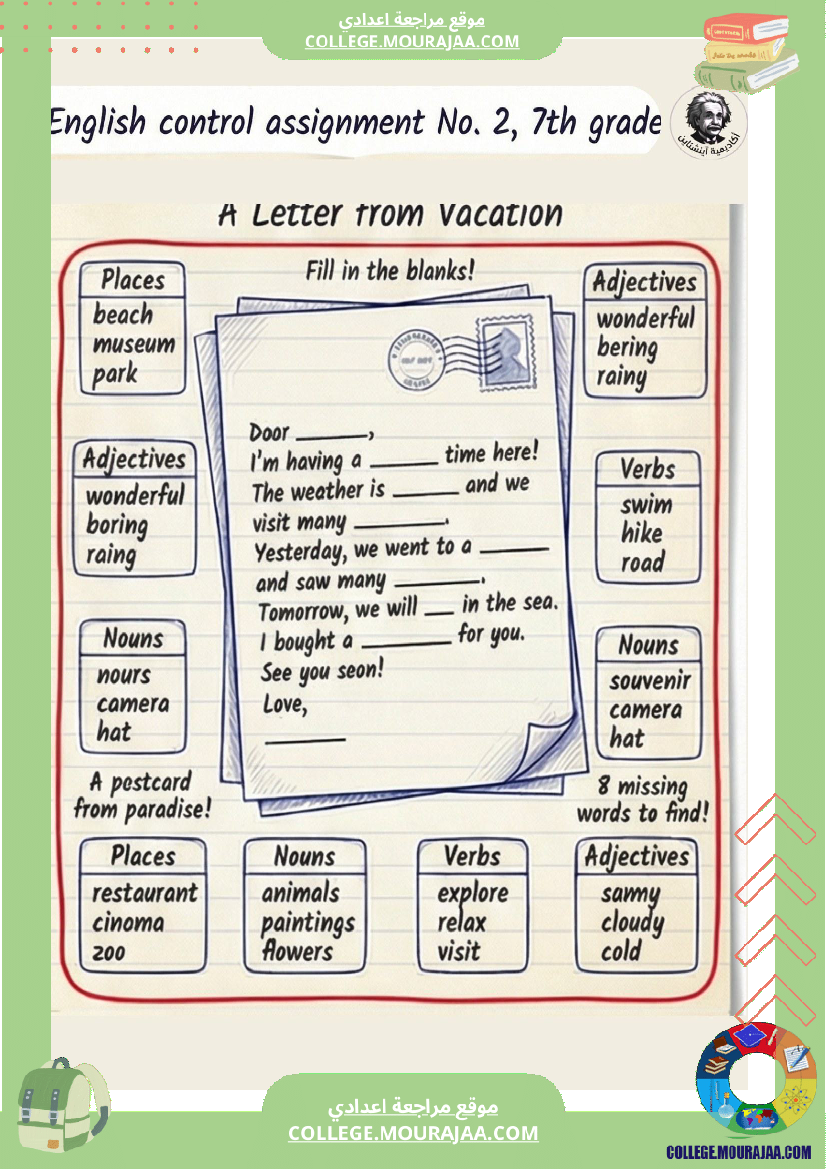 موقع مراجعة اعدادي
COLLEGE.MOURAJAA.COM
English control assignment No. 2, 7th grade
أكاديمية آينشتاين
A Letter from Vacation
Fill in the blanks!
Places
beach
museum
park
Adjectives
wonderful
bering
rainy
Adjectives
wonderful
boring
raing
Verbs
swim
hike
road
Nouns
nours
camera
hat
Nouns
souvenir
camera
hat
Door ______,
I'm having a ______ time here!
The weather is ______ and we
visit many ________.
Yesterday, we went to a ______
and saw many ________.
Tomorrow, we will ___ in the sea.
I bought a ________ for you.
See you seon!
Love,
_______
A pestcard
from paradise!
8 missing
words to find!
Places
restaurant
cinoma
zoo
Nouns
animals
paintings
flowers
Verbs
explore
relax
visit
Adjectives
sanny
cloudy
cold
موقع مراجعة اعدادي
COLLEGE.MOURAJAA.COM
COLLEGE.MOURAJAA.COM